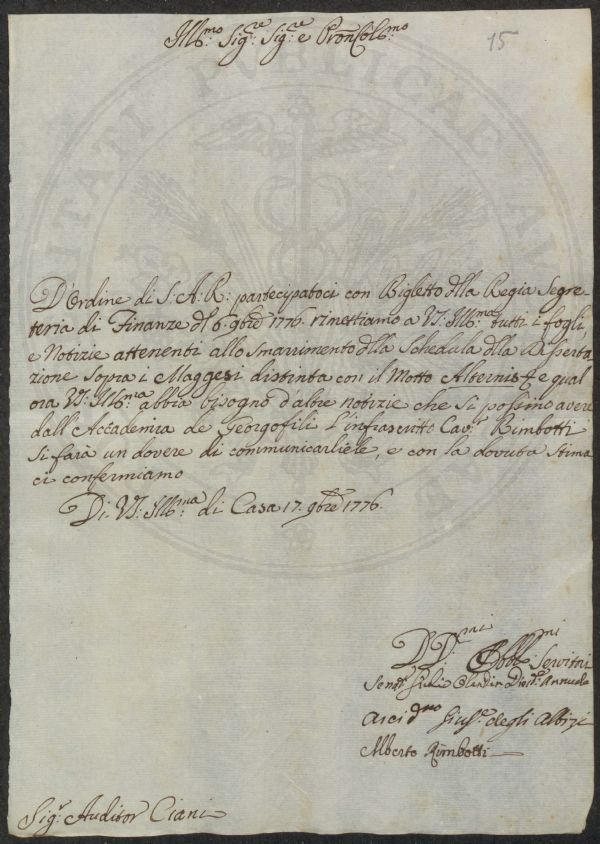 Ill:mo Sig:re Sig:re e Pron Col:mo
15
D'Ordine di S: A: R: partecipatoci con Biglietto dlla Regia Segre-
teria di Finanze dl 6. 9bre 1776. rimettiamo a VS: Ill:ma tutti i fogli,
e Notizie attenenti allo smarrimento dlla Schedula dlla Disserta
zione sopra i Maggesi distinta con il Motto Alternis e qual
ora VS: Ill:ma abbia bisogno d'altre notizie che si possino avere
dall'Accademia de Georgofili l'infrascritto Cav:r Rimbotti
si farà un dovere di communicarliele, e con la dovuta stima
ci confermiamo
Di VS: Ill:ma di Casa 17. 9bre 1776.
D D:mi Obbl:mi Servitori
Sen:r Giulio
Arcid:no Gius:e degli Albizi
Alberto Rimbotti
Sig:r Auditor Ciani